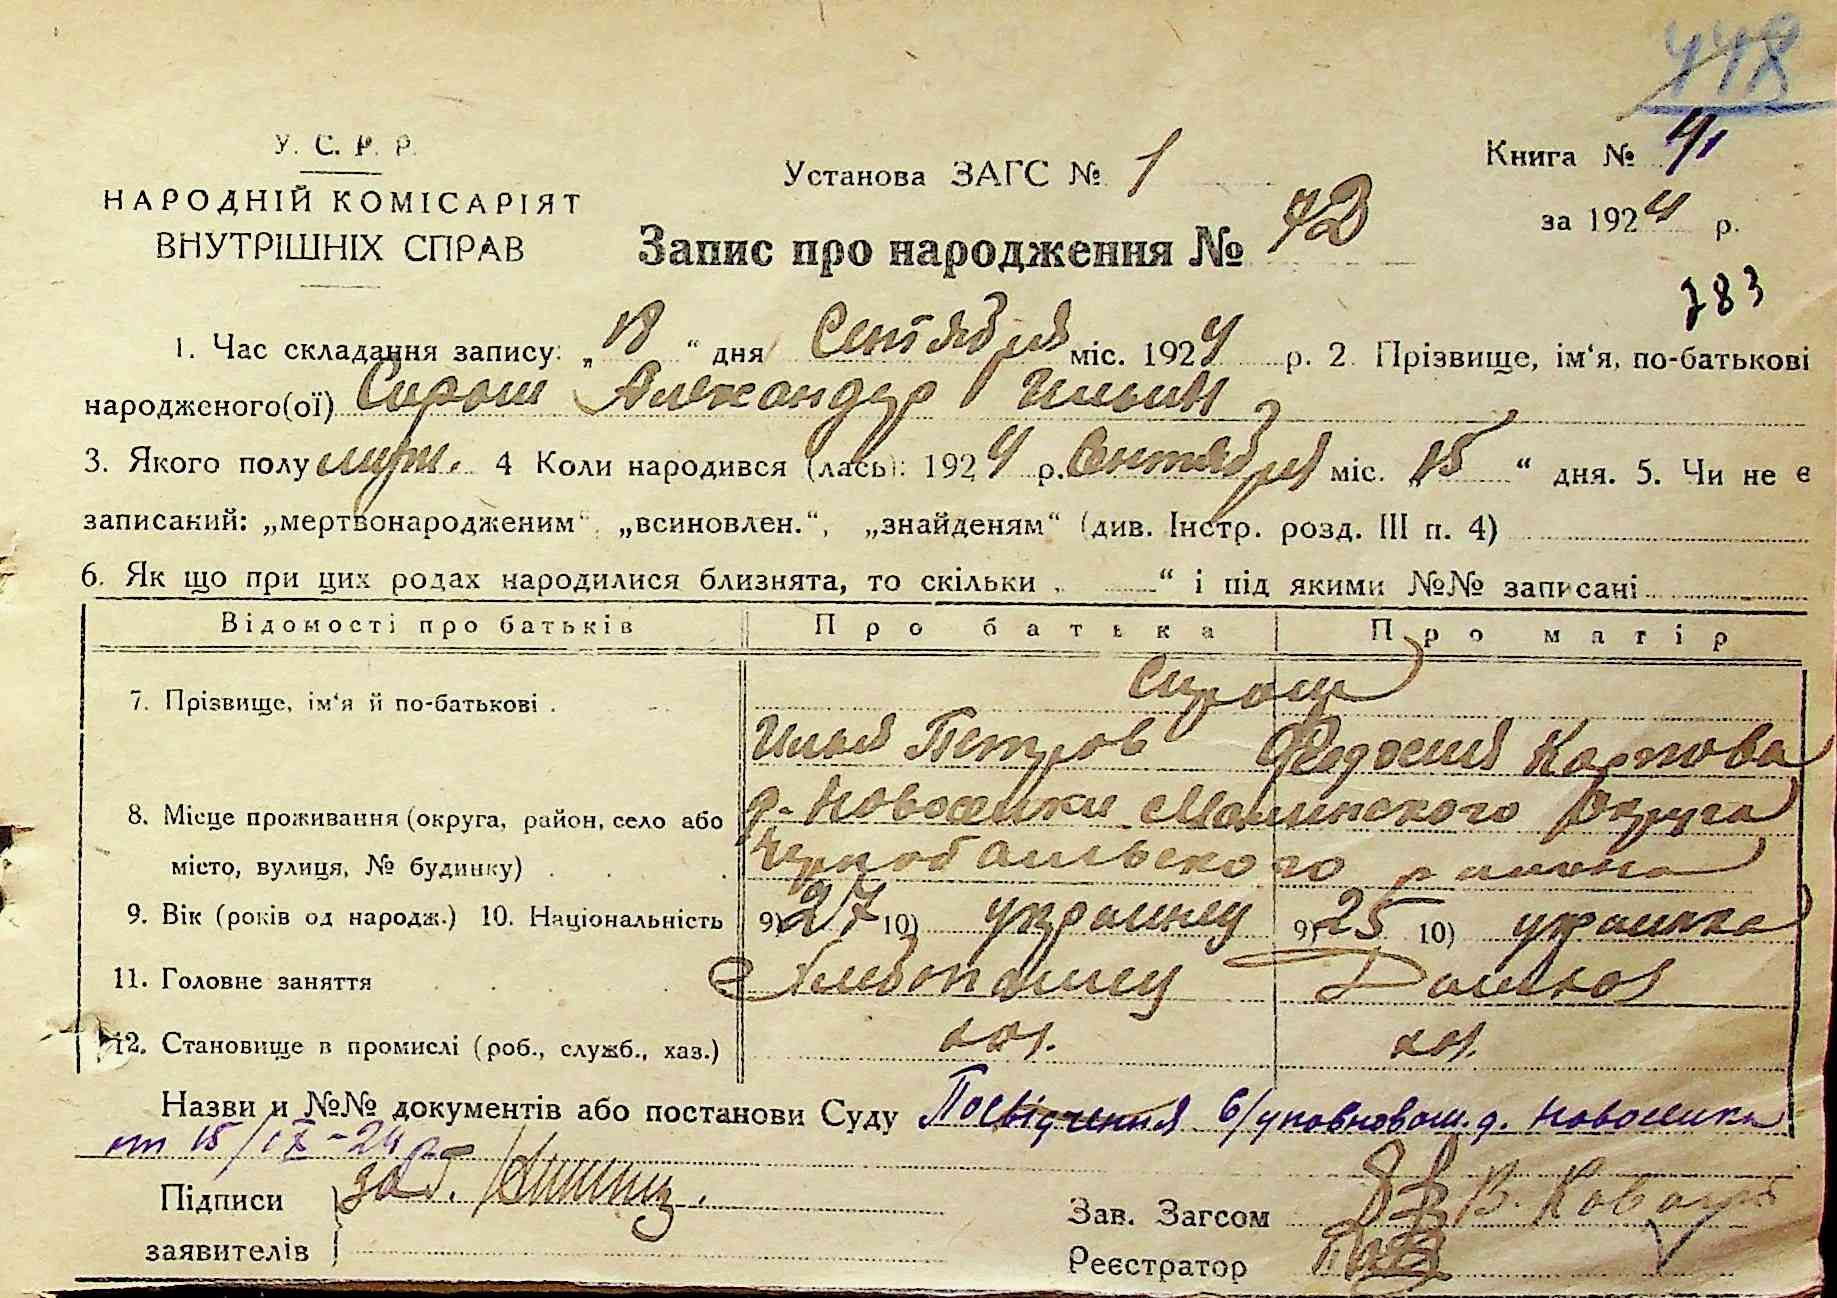 448
У. С. Р. Р.
НАРОДНІЙ КОМІСАРІЯТ
ВНУТРІШНІХ СПРАВ
Установа ЗАГС № 1
Книга №
за 1924 р.
Запис про народження №
783
1. Час складання запису: „18“ дня Сентября міс. 1924 р. 2. Прізвище, ім‘я, по-батькові
народженого(ої) Сирош Александр Ильин
3. Якого полу муж. 4 Коли народився (лась): 1924 р. Сентября міс. „15“ дня. 5. Чи не є
записаний: „мертвонародженим“, „всиновлен.“, „знайденям“ (див. Інстр. розд. III п. 4)
6. Як що при цих родах народилися близнята, то скільки „ “ і під якими №№ записані
Відомості про батьків Про батька Про матір
7. Прізвище, ім‘я й по-батькові . Сирош
Илья Петров Феодосия Карпова
8. Місце проживання (округа, район, село або д. Новосилки Малинского Округа
місто, вулиця, № будинку) . . . Чернобыльского района
9. Вік (років од народж.) 10. Національність 9) 27 10) украинец 9) 25 10) украинка
11. Головне заняття . . . . Хлебопашец Домхоз
12. Становище в промислі (роб., служб., хаз.) хоз. хоз.
Назви и №№ документів або постанови Суду Посвідчення б/ уповноваж. д. Новосилки
от 15/IX-24 р.
Підписи
заявителів
Зав. Загсом
Реєстратор